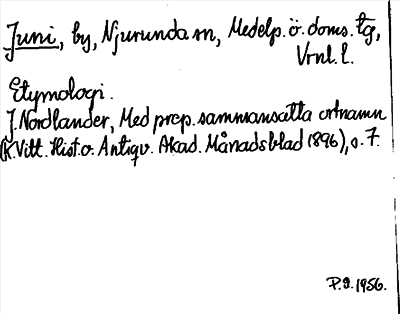 Juni, by, Njurunda sn, Medelp. ö. doms. tg,
Vrnl. l.
Etymologi.
J. Nordlander, Med prep. sammansatta ortnamn
(K. Vitt. Hist. o. Antiqv. Akad. Månadsblad 1896), s. 7.
P.J. 1956.